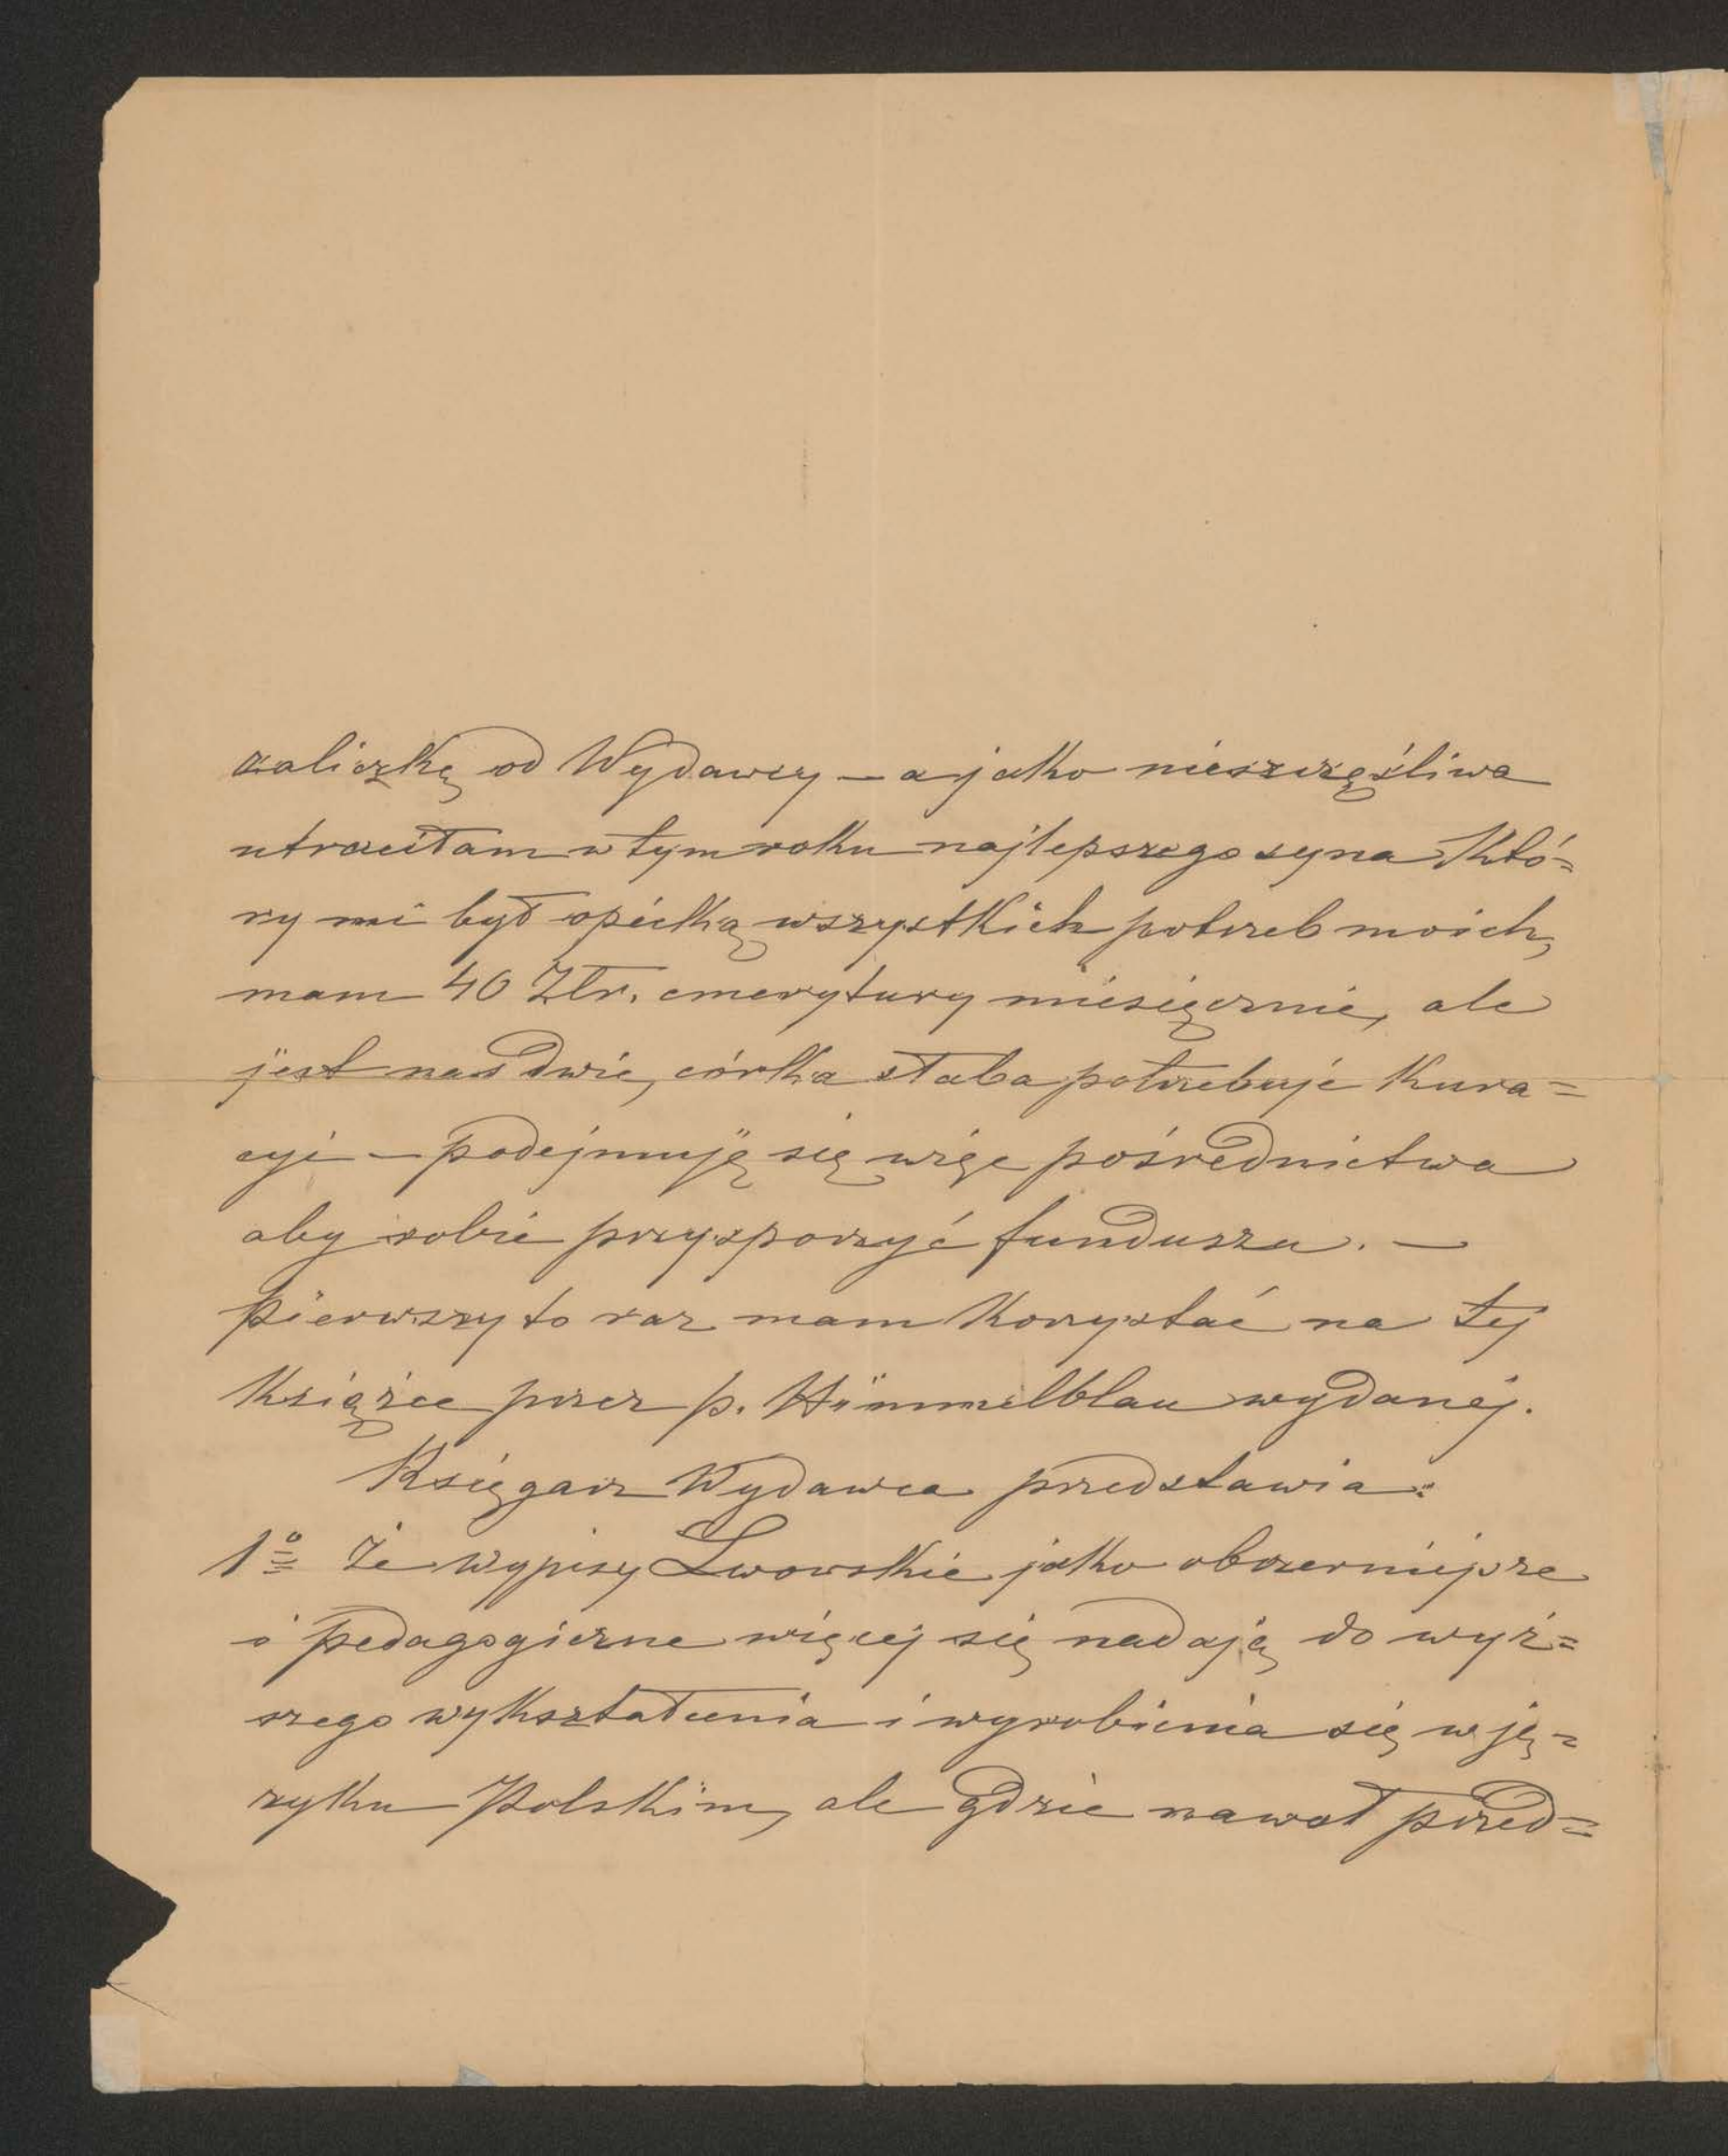 zaliczkę od Wydawcy — a jako nieszczęśliwa
utraciłam w tym roku najlepszego syna któ=
ry mi był opiéką wszystkich potrzeb moich,
mam 40 Złr. emerytury miesięcznie, ale
jest nas dwie, córka słaba potrzebuje kura=
cyi — podejmuję się więc pośrednictwa
aby sobie przysporzyć funduszu. —
Pierwszy to raz mam korzystać na téj
książce przez p. Himmelblau wydanéj.
Księgarz Wydawca przedstawia:
1º że wypisy Lwowskie jako obszerniejsze
i pedagogiczne więcéj się nadają do wyż=
szego wykształcenia i wyrobienia się w ję=
zyku Polskim, ale gdzie nawał przed=